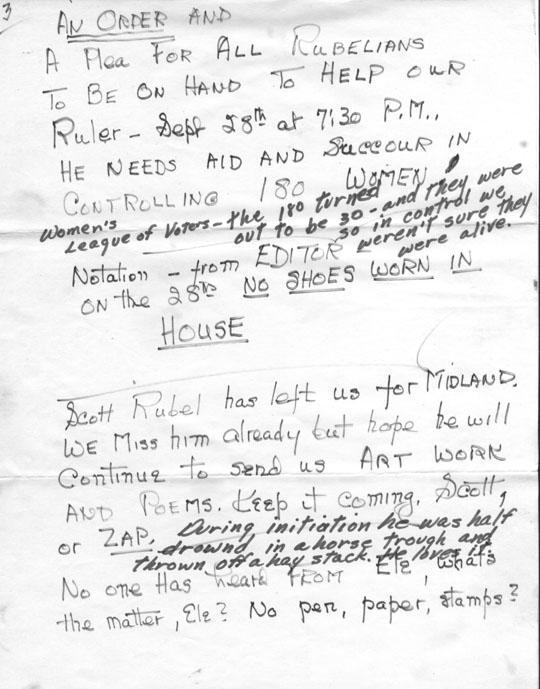 3
AN ORDER AND
A Plea FOR ALL RUBELIANS
TO BE ON HAND TO HELP OUR
Ruler - Sept 28th at 7:30 P.M.,
HE NEEDS AID AND SUCCOUR IN
CONTROLLING 180 WOMEN!
Women's
League of Voters - the 180 turned
out to be 30 - and they were
so in control we
weren't sure they
were alive.
Notation - from EDITOR
ON the 28th NO SHOES WORN IN
HOUSE
Scott Rubel has left us for MIDLAND.
WE Miss him already but hope he will
Continue to send us ART WORK
AND POEMS. Keep it coming, Scott,
or ZAP. During initiation he was half
drownd in a horse trough and
thrown off a hay stack. He loves it.
No one Has heard FROM Ele, what's
the matter, Ele? No pen, paper, stamps?